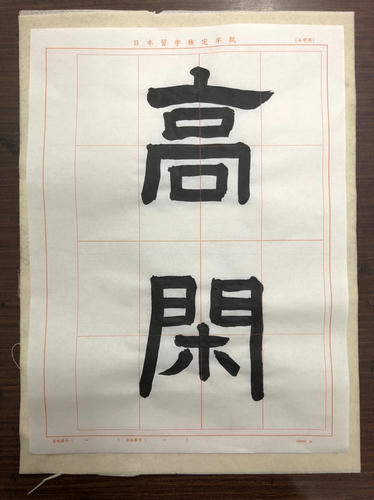 日本習字検定半紙
高
閑